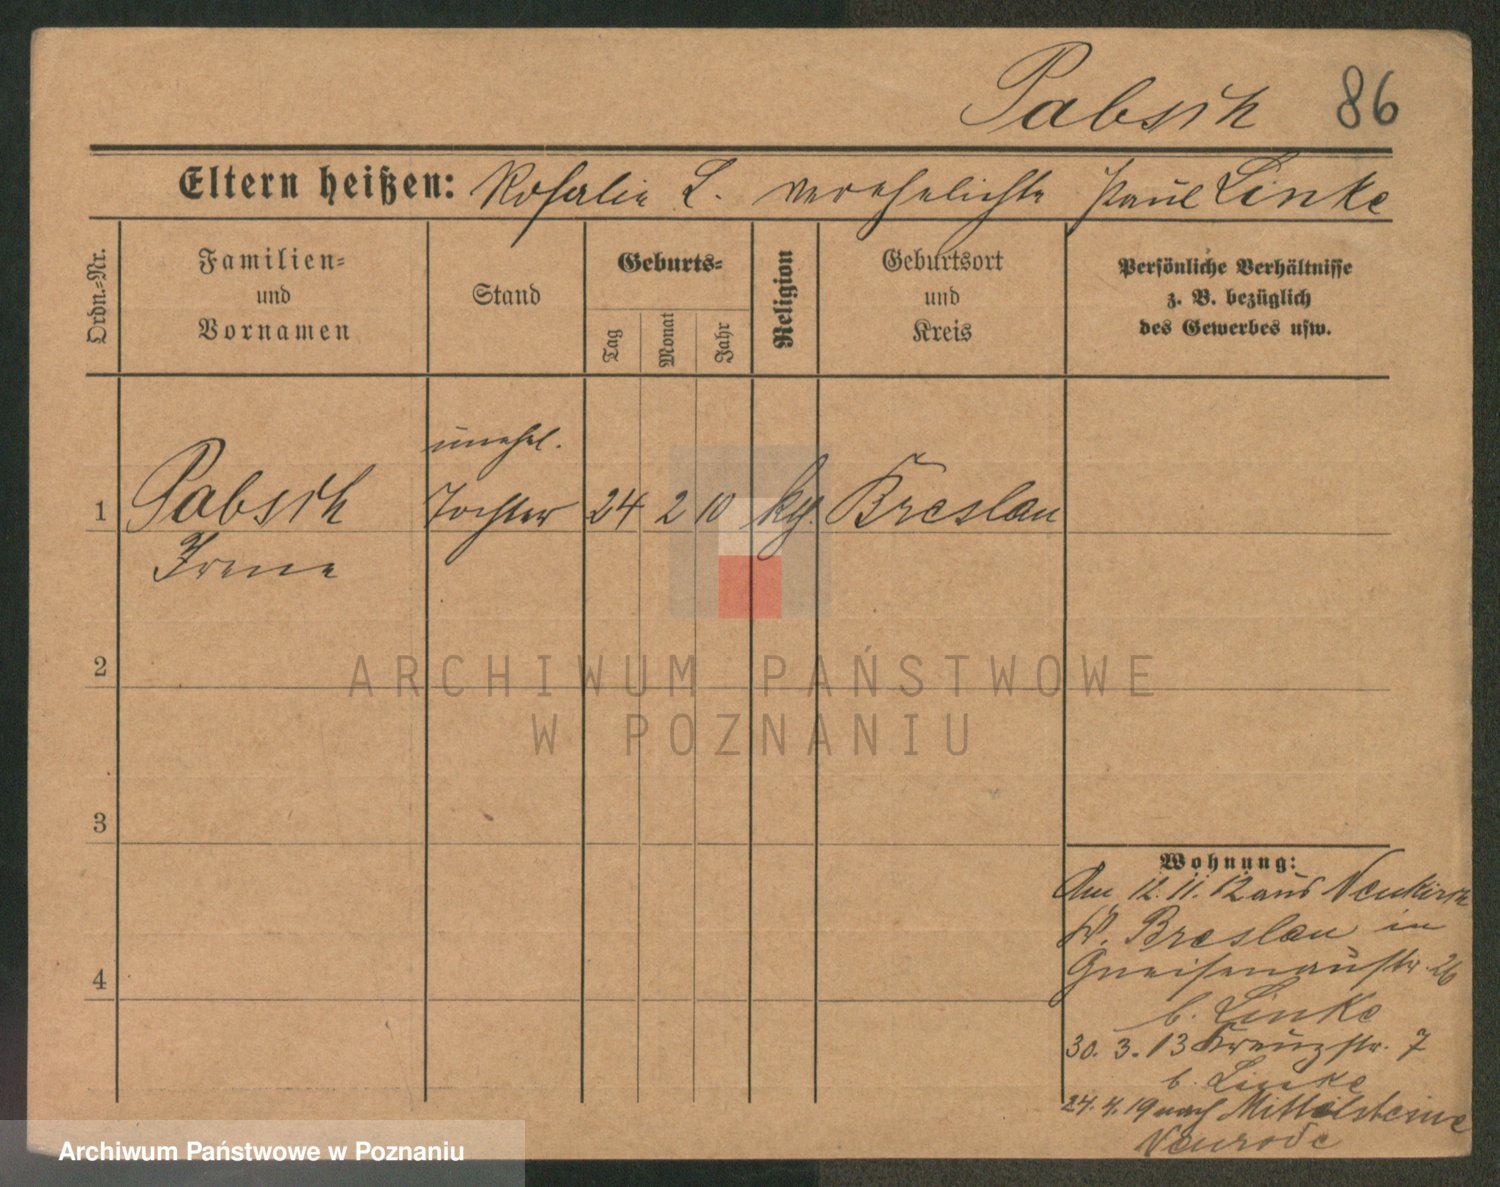 Pabsch 86
Eltern heißen: Rosalie L. verehelichte Paul Linke
Ordn.-Nr.
Familien-
und
Vornamen
Stand
Geburts-
Tag
Monat
Jahr
Religion
Geburtsort
und
Kreis
Persönliche Verhältnisse
z. B. bezüglich
des Gewerbes usw.
unehel.
1 Pabsch Tochter 24 2 10 Breslau
Irene
2
3
4
Wohnung:
Am 12.11.12 aus Neukirch
Breslau in
Gneisenaustr. 26
b. Linke
30. 3. 13 Kreuzstr. 7
b. Linke
24. 4. 19 nach Mittelsteine
Neurode
ARCHIWUM PAŃSTWOWE
W POZNANIU
Archiwum Państwowe w Poznaniu